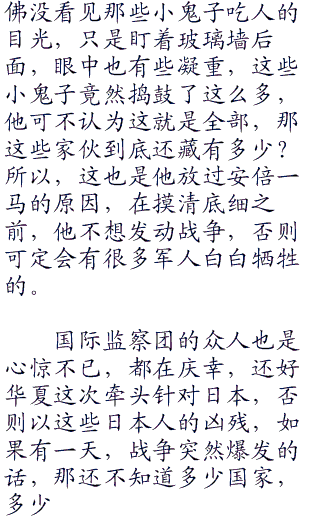 佛没看见那些小鬼子吃人的
目光，只是盯着玻璃墙后
面，眼中也有些凝重，这些
小鬼子竟然捣鼓了这么多，
他可不认为这就是全部，那
这些家伙到底还藏有多少？
所以，这也是他放过安倍一
马的原因，在摸清底细之
前，他不想发动战争，否则
可定会有很多军人白白牺牲
的。
国际监察团的众人也是
心惊不已，都在庆幸，还好
华夏这次牵头针对日本，否
则以这些日本人的凶残，如
果有一天，战争突然爆发的
话，那还不知道多少国家，
多少